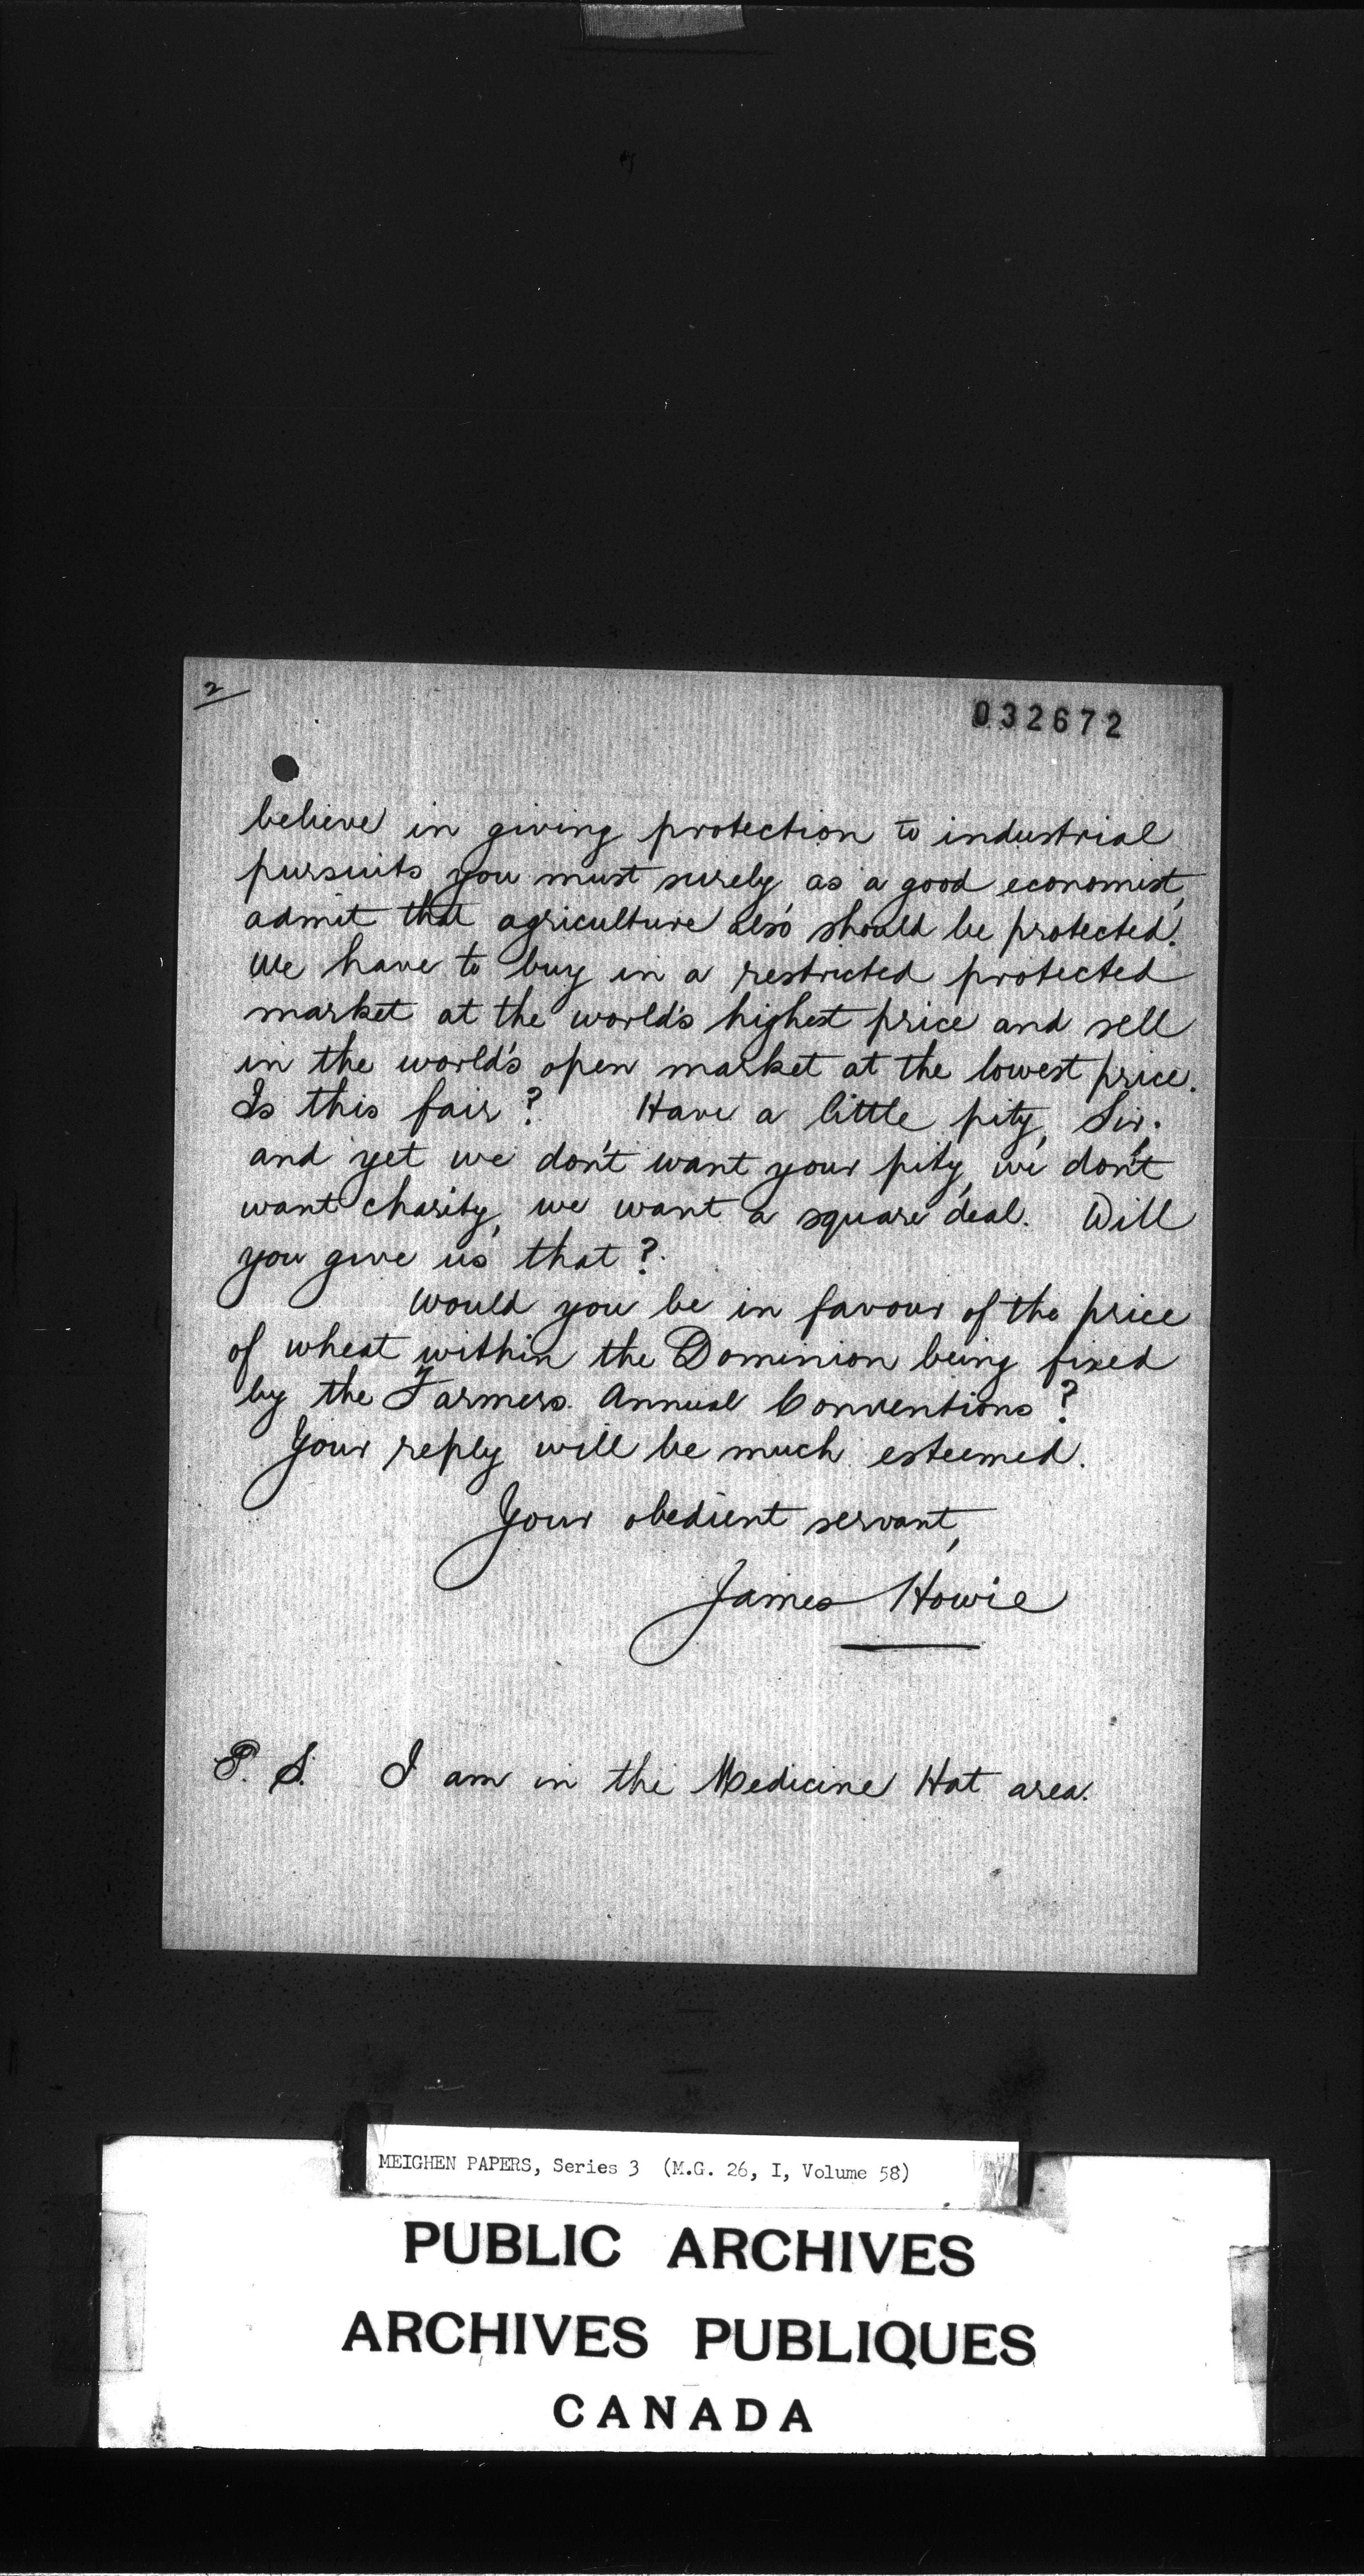 2
032672
believe in giving protection to industrial
pursuits you must surely, as a good economist,
admit that agriculture also should be protected.
We have to buy in a restricted protected
market at the world's highest price and sell
in the world's open market at the lowest price.
Is this fair? Have a little pity, Sir.
and yet we don't want your pity, we don't
want charity, we want a square deal. Will
you give us that?
Would you be in favour of the price
of wheat within the Dominion being fixed
by the Farmers. Annual Conventions?
Your reply will be much esteemed.
Your obedient servant,
James Howie
P. S. I am in the Medicine Hat area.
MEIGHEN PAPERS, Series 3 (M.G. 26, I, Volume 58)
PUBLIC ARCHIVES
ARCHIVES PUBLIQUES
CANADA